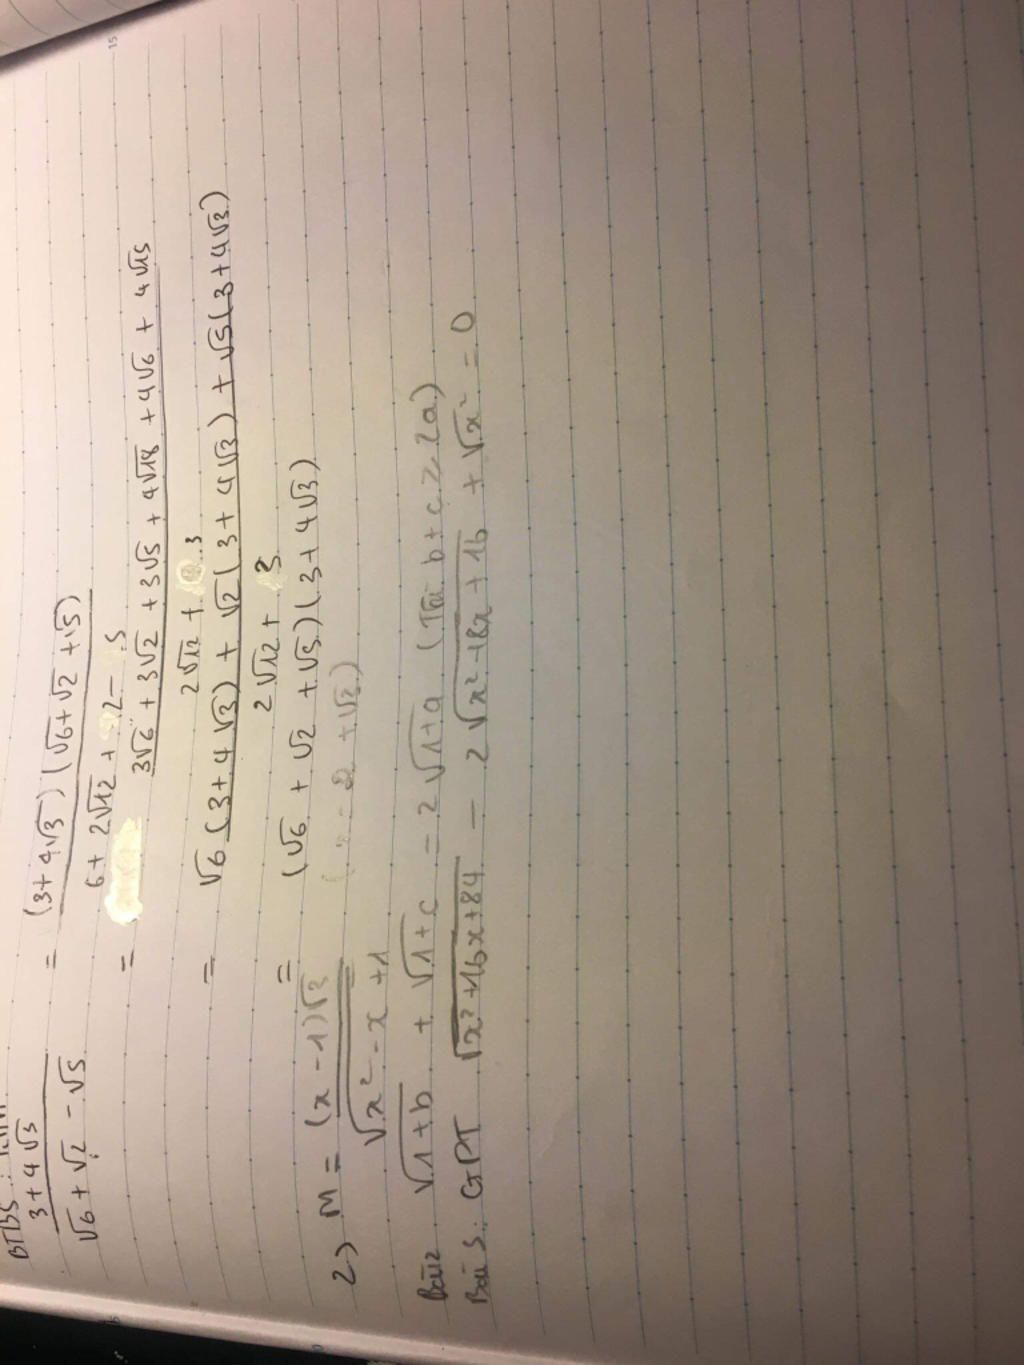 BTBS :
3+4√3 / √6+√2-√5 = (3+4√3)(√6+√2+√5) / 6+2√12+2-5
= 3√6+3√2+3√5+4√18+4√6+4√15 / 2√12+3
= √6(3+4√3)+√2(3+4√3)+√5(3+4√3) / 2√12+3
= (√6+√2+√5)(3+4√3)
2) M = (x-1)√3 / √x²-x+1
Bài 2 √1+b + √1+c = 2√1+a (Tìm b+c ≥ 2a)
Bài 3: GPT √x²+16x+84 - 2√x²-18x+16 + √x² = 0